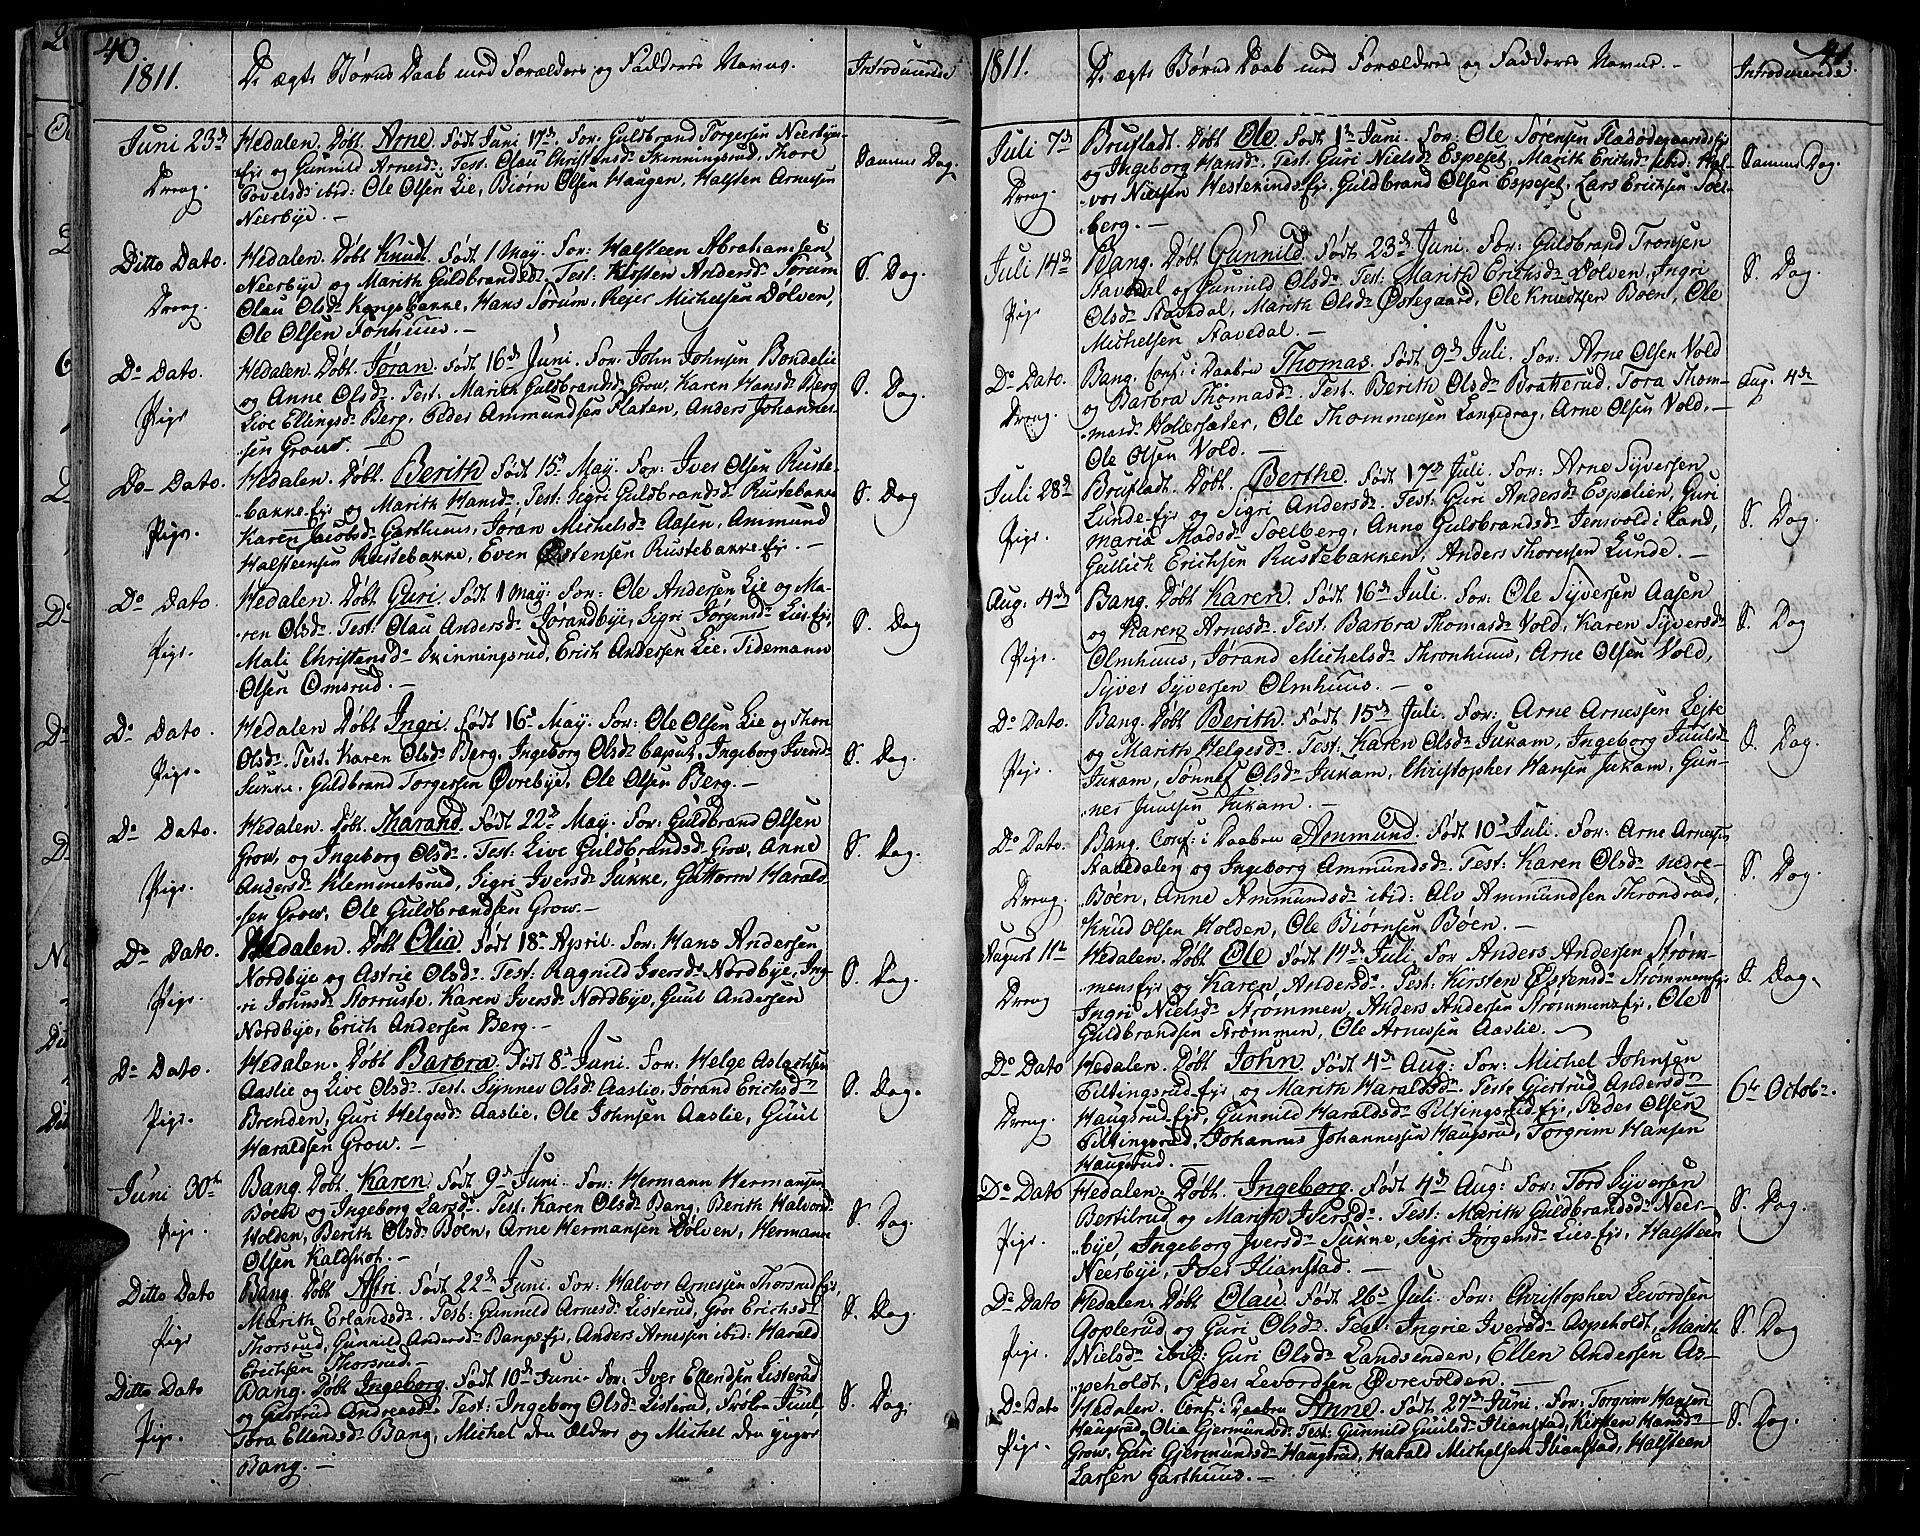 40.
1811.
De ægte Børns Daab med Forældres og Faddres Navne.
Introducerede
Juni 23de
Dreng.
Hedalen. Døbt Arne. Født Juni 17de. For: Guldbrand Torgersen Neerbye-
Eje og Gunnild Arnesdr. Test. Olau Christensdr. Skinningsrud, Thore
Povelsdr. ibid: Ole Olsen Lie, Biørn Olsen Haugen, Halsten Arnesen
Neerbye. —
Samme Dag.
Ditto Dato.
Dreng.
Hedalen. Døbt Knudt. Født 1 May. For: Halsteen Abrahamsen
Neerbye og Marith Guldbrandsdr. Test: Kirsten Andersdr. Sørum
Olau Olsdr. Kongsbakke, Hans Sørum, Rejer Michelsen Dølven,
Ole Olsen Jonhuus. —
S. Dag.
Do Dato.
Pige
Hedalen. Døbt Jøran. Født 16de Juni. For: John Johnsen Bondelie
og Anne Olsdr. Test. Marith Guldbrandsdr. Grow, Karen Hansdr. Berg
Live Ellingsdr. Berg, Peder Ammundsen Platen, Anders Johannes-
sen Grow. —
S. Dag.
Do Dato.
Pige.
Hedalen. Døbt. Berith Født 15de May. For: Iver Olsen Ruste-
bakke-eje og Marith Hansdr. Test: Sigri Guldbrandsdr. Rustebakke
Karen Jacobsdr. Garthuus, Jøran Michelsdr. Aasen, Ammund
Halsteensen Rustebakke, Even Østensen Rustebakke-eje. —
S. Dag
Do Dato.
Pige.
Hedalen. Døbt Guri. Født 1 May: For: Ole Andersen Lie og Ma-
ren Olsdr. Test: Olau Andersdr. Jørandbye, Sigri Jørgensdr. Lies-Eje,
Mali Christensdr. Skinningsrud, Erich Andersen Lie, Tidemann
Olsen Omsrud. —
S. Dag
Do Dato.
Pige.
Hedalen Døbt Ingri. Født 16de May. For: Ole Olsen Lie og Thon
Olsdr. Test. Karen Olsdr. Berg, Ingeborg Olsdr. Caput, Ingeborg Iversdr.
Sukke, Guldbrand Torgersen Øvrebye, Ole Olsen Berg. —
S. Dag.
Do Dato.
Pige.
Hedalen. Døbt. Tharand. Født 22de May. For: Guldbrand Olsen
Grow, og Ingeborg Olsdr. Test: Live Guldbrandsdr. Grow, Anne
Andersdr. Klemmetsrud, Sigri Iversdr. Sukke, Guttorm Harald-
sen Grow, Ole Guldbrandsen Grow. —
S. Dag.
Do Dato.
Pige.
Hedalen. Døbt Olia Født 18de April. For: Hans Andersen
Nordbye og Astrie Olsdr. Test. Ragnild Iversdr. Nordbye, Ing-
ri Johnsdr. Storrusse, Karen Iversdr. Nordbye, Guul Andersen
Nordbye, Erich Andersen Berg. —
S. Dag.
Do Dato.
Pige.
Hedalen. Døbt Barbra. Født 8de Juni. For: Helge Aslachsen
Aaslie og Live Olsdr. Test: Synnev Olsdr. Aaslie, Jørand Erichsdr.
Brenden, Guri Helgesdr. Aaslie, Ole Johnsen Aaslie, Guul
Haraldsen Grow. —
S. Dag.
Juni 30te
Pige.
Bang. Døbt. Karen. Født 9de Juni. For: Hermann Hermansen
Bøen og Ingeborg Larsdr. Test: Karen Olsdr. Bang, Berith Halvordr.
Holden, Berith Olsdr. Bøen, Arne Hermansen Dølven, Hermann
Olsen Kaldhol. —
S. Dag.
Ditto Dato
Pige
Bang Døbt Afri. Født 22de Juni. For: Halvor Arnessen Thorsrud Eje,
Marith Erlandsdr. Test: Gunnild Arnesdr. Listerud, Groe Erichsdr.
Thorsrud, Gunnild Andersdr. Bangs-Eje, Anders Arnessen ibid: Harald
Erichsen Thorsrud. —
S. Dag.
Ditto Dato
Pige.
Bang. Døbt Ingeborg. Født 10de Juni. For: Iver Ellendsen Listerud
og Giertrud Andreasdr. Test: Ingeborg Olsdr. Listerud, Frøken Juul,
Tora Ellendsdr. Bang, Michel den ældre og Michel den yngre
Bang. —
S. Dag.
41.
1811.
De ægte Børns Daab med Forældres og Faddres Navne. —
Introducerede.
Juli 7de
Dreng.
Brufladt. Døbt Ole. Født 1te Juni. For: Ole Sørensen Fladødegaardseje
og Ingeborg Hansdr. Test. Guri Nielsdr. Espeset, Marith Erichsdr. ibid: Hal-
vor Nielsen Westerindseje, Guldbrand Olsen Espeset, Lars Erichsen Soel-
berg. —
Samme Dag.
Juli 14de
Pige
Bang. Døbt Gunnild. Født 23de Juni. For: Guldbrand Tronsen
Stavedal og Gunnild Olsdr. Test: Marith Erichsdr. Dølven, Ingri
Olsdr. Stavedal, Marith Olsdr. Østegaard, Ole Knudtsen Bøen, Ole
Michelsen Stavedal. —
S. Dag
Do Dato.
Dreng.
Bang. Conf: i Daaben Thomas. Født 9de Juli. For: Arne Olsen Vold
og Barbra Thomasdr. Test. Berith Olsdr. Bratterud, Tora Thom-
masdr. Hollerseter, Ole Thommessen Langedrag, Arne Olsen Vold, —
Ole Olsen Vold. —
Aug. 4de
Juli 28de
Pige.
Brufladt. Døbt. Berthe. Født 17de Juli. For: Arne Syversen
Lunde-eje og Sigri Andersdr. Test: Guri Andersdr. Espelien, Guri
Maria Madsdr. Soelberg, Anne Guldbrandsdr. Jensvold i Land,
Gullich Erichsen Rustebakken, Anders Thoressen Lunde. —
S. Dag.
Aug: 4de
Pige.
Bang. Døbt Karen. Født 16de Juli. For: Ole Syversen Aasen
og Karen Arnesdr. Test. Barbra Thomasdr. Vold, Karen Syversdr.
Olmhuus, Jørand Michelsdr. Thronhuus, Arne Olsen Vold,
Syver Syversen Olmhuus. —
S. Dag
Do Dato.
Pige.
Bang. Døbt Berith. Født 15de Juli. For: Arne Arnessen Lejte
og Marith Helgesdr. Test: Karen Olsdr. Jukam, Ingeborg Juulsdr.
Jukam, Sønnef Olsdr. Jukam, Christopher Hansen Jukam, Gun-
ner Juulsen Jukam. —
S. Dag.
Do Dato.
Dreng.
Bang. Conf: i Daaben Ammund. Født 10de Juli. For: Arne Arnessen
Stavedalen og Ingeborg Ammundsdr. Test: Karen Olsdr. nedre-
Bøen, Anne Ammundsdr. ibid: Alv Ammundsen Throndrud,
Knud Olsen Holden, Ole Biørnsen Bøen. —
S. Dag.
August 11te
Dreng
Hedalen. Døbt Ole Født 14de Juli. For Anders Andersen Strøm-
mens-Eje og Karen Andersdr. Test: Kirsten Østensdr. Strømmens-Eje
Ingri Nielsdr. Strømmen, Anders Andersen Strømmens-Eje, Ole
Guldbrandsen Strømmen, Ole Arnessen Aaslie. —
S. Dag.
Do Dato
Dreng.
Hedalen. Døbt John. Født 4de Aug: For: Michel Johnsen
Piltingsrud-Eje og Marith Haraldsdr. Test: Giertrud Andersdr.
Haugsrud-Eje, Gunnild Haraldsdr. Piltingsrud-Eje, Peder Olsen
Piltingsrud, Johannes Johannessen Haugsrud, Torgrim Hansen
Haugsrud. —
6te Octobr.
Do Dato
Pige.
Hedalen. Døbt. Ingeborg. Født 4de Aug: For: Tord Syversen
Bertilrud og Marith Iversdr. Test: Marith Guldbrandsdr. Neer-
bye, Ingeborg Iversdr. Sukke, Sigri Jørgensdr. Lies-Eje, Halsteen
Neerbye, Iver Ilianstad. —
S. Dag.
Do Dato
Pige.
Hedalen. Døbt Olau. Født 26de Juli. For: Christopher Levordsen
Goplerud og Guri Olsdr. Test: Ingrie Iversdr. Aspeholdt, Marith
Nielsdr. ibid: Guri Olsdr. Landsenden, Ellen Andersen As-
peholdt, Peder Levordsen Øvrevolden. —
S. Dag
Do Dato
Pige.
Hedalen. Conf: i Daaben Anne. Født 27de Juni. For: Torgrim Hansen
Haugsrud og Olia Gjermundsdr. Test: Gunnild Guulsdr. Ilianstad, Kirsten Hansdr.
Grow, Guri Gjermundsdr. Haugsrud, Harald Michelsen Ilianstad, Halsteen
Larsen Garthuus. —
S. Dag.